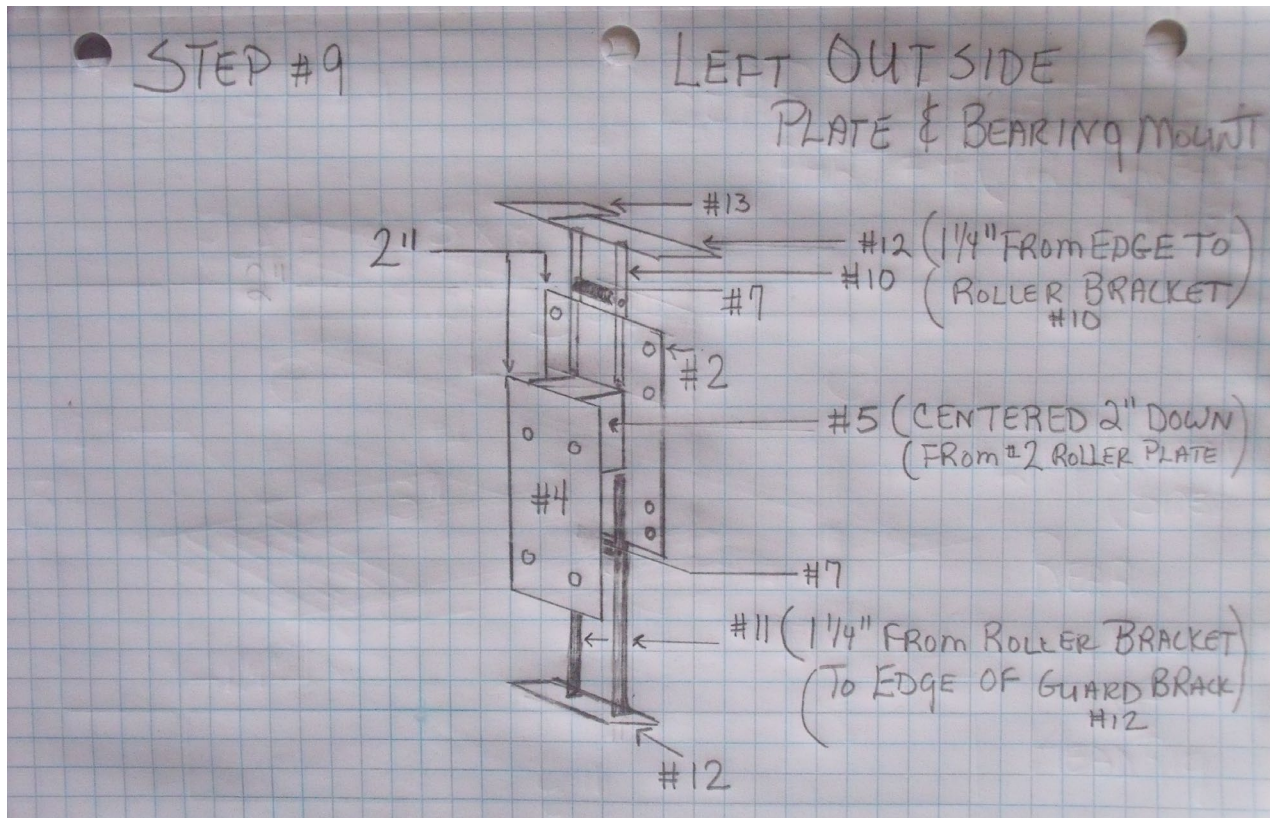 STEP #9
LEFT OUTSIDE
PLATE & BEARING MOUNT
#13
2"
#12 (1 1/4" FROM EDGE TO
ROLLER BRACKET)
#10
#10
#7
2"
#2
#5 (CENTERED 2" DOWN
(FROM #2 ROLLER PLATE)
#4
#7
#11 (1 1/4" FROM ROLLER BRACKET
(TO EDGE OF GUARD BRACK)
#12
#12